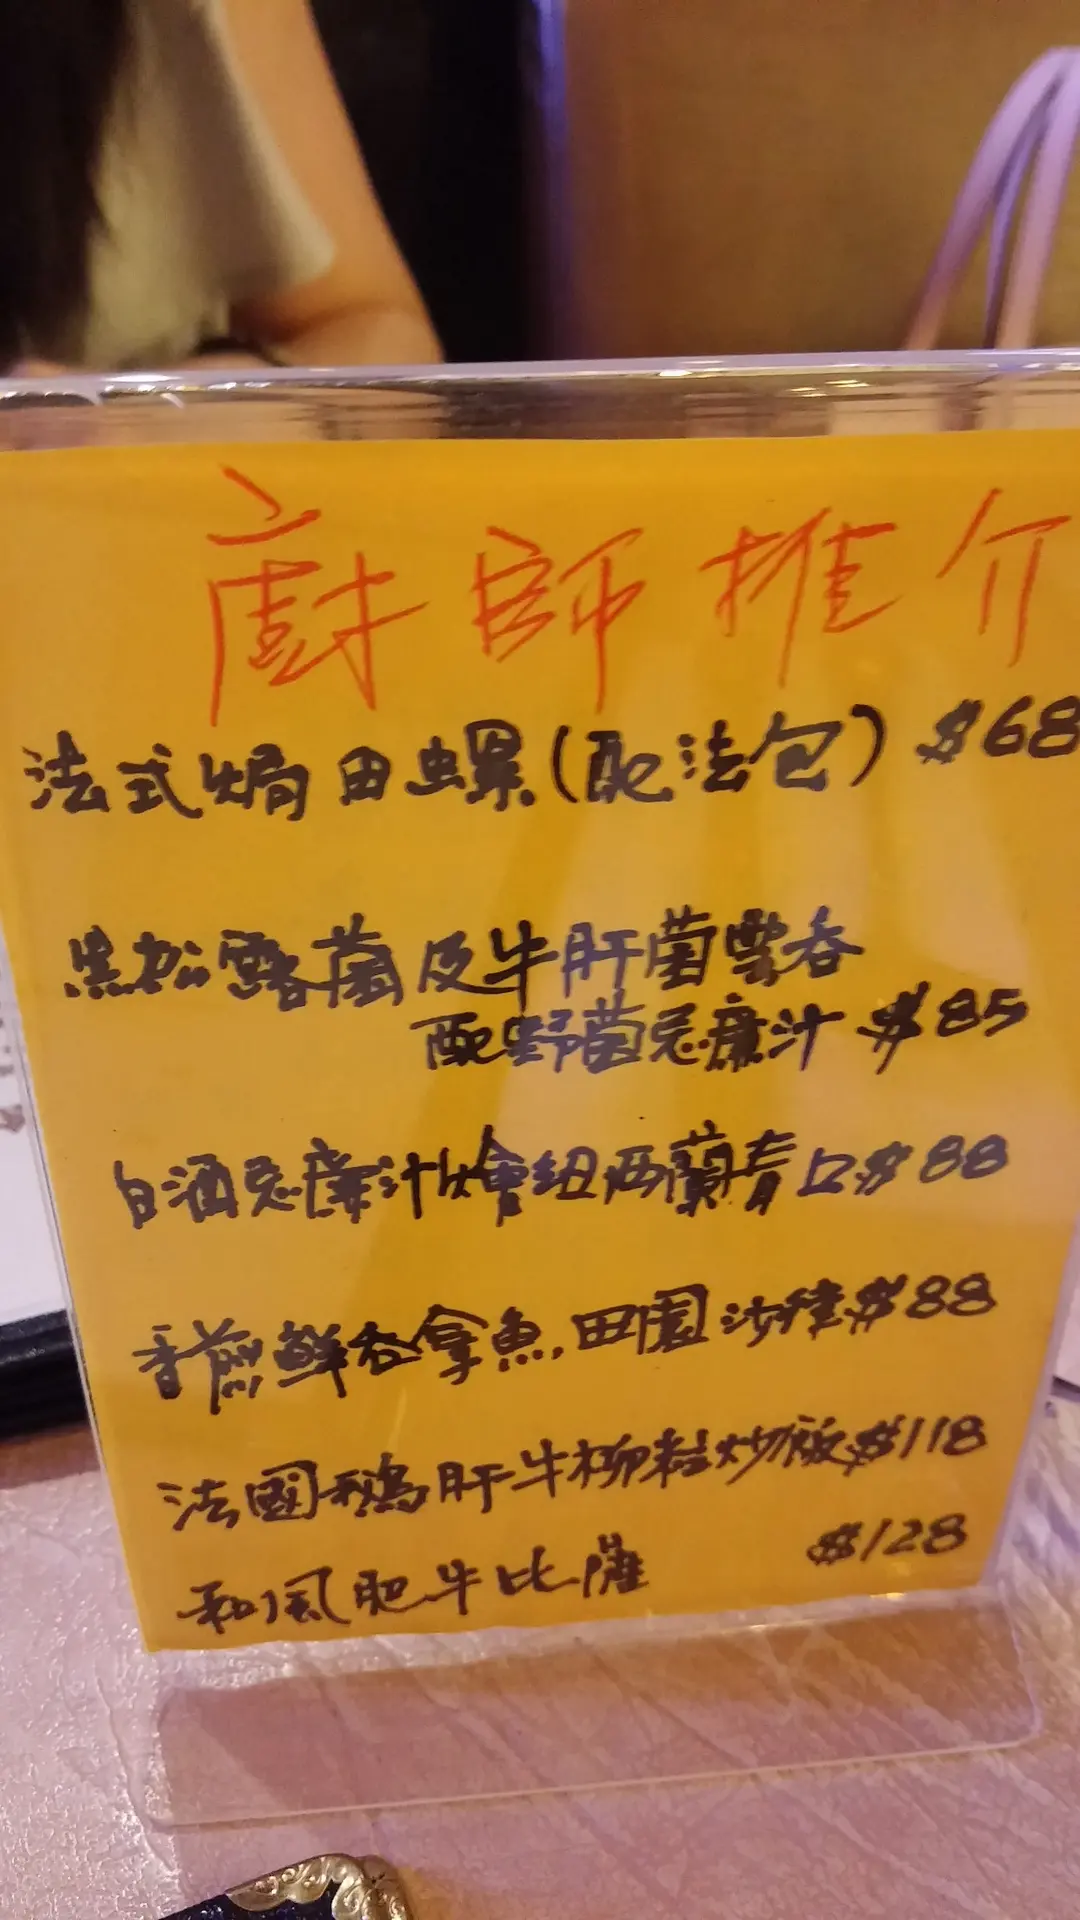 廚師推介
法式焗田螺(配法包) $68
黑松露菌及牛肝菌雲吞
配野菌忌廉汁 $85
白酒忌廉汁燴紐西蘭青口 $88
香煎鮮吞拿魚,田園沙律 $88
法國鵝肝牛柳粒炒飯 $118
和風肥牛比薩 $128